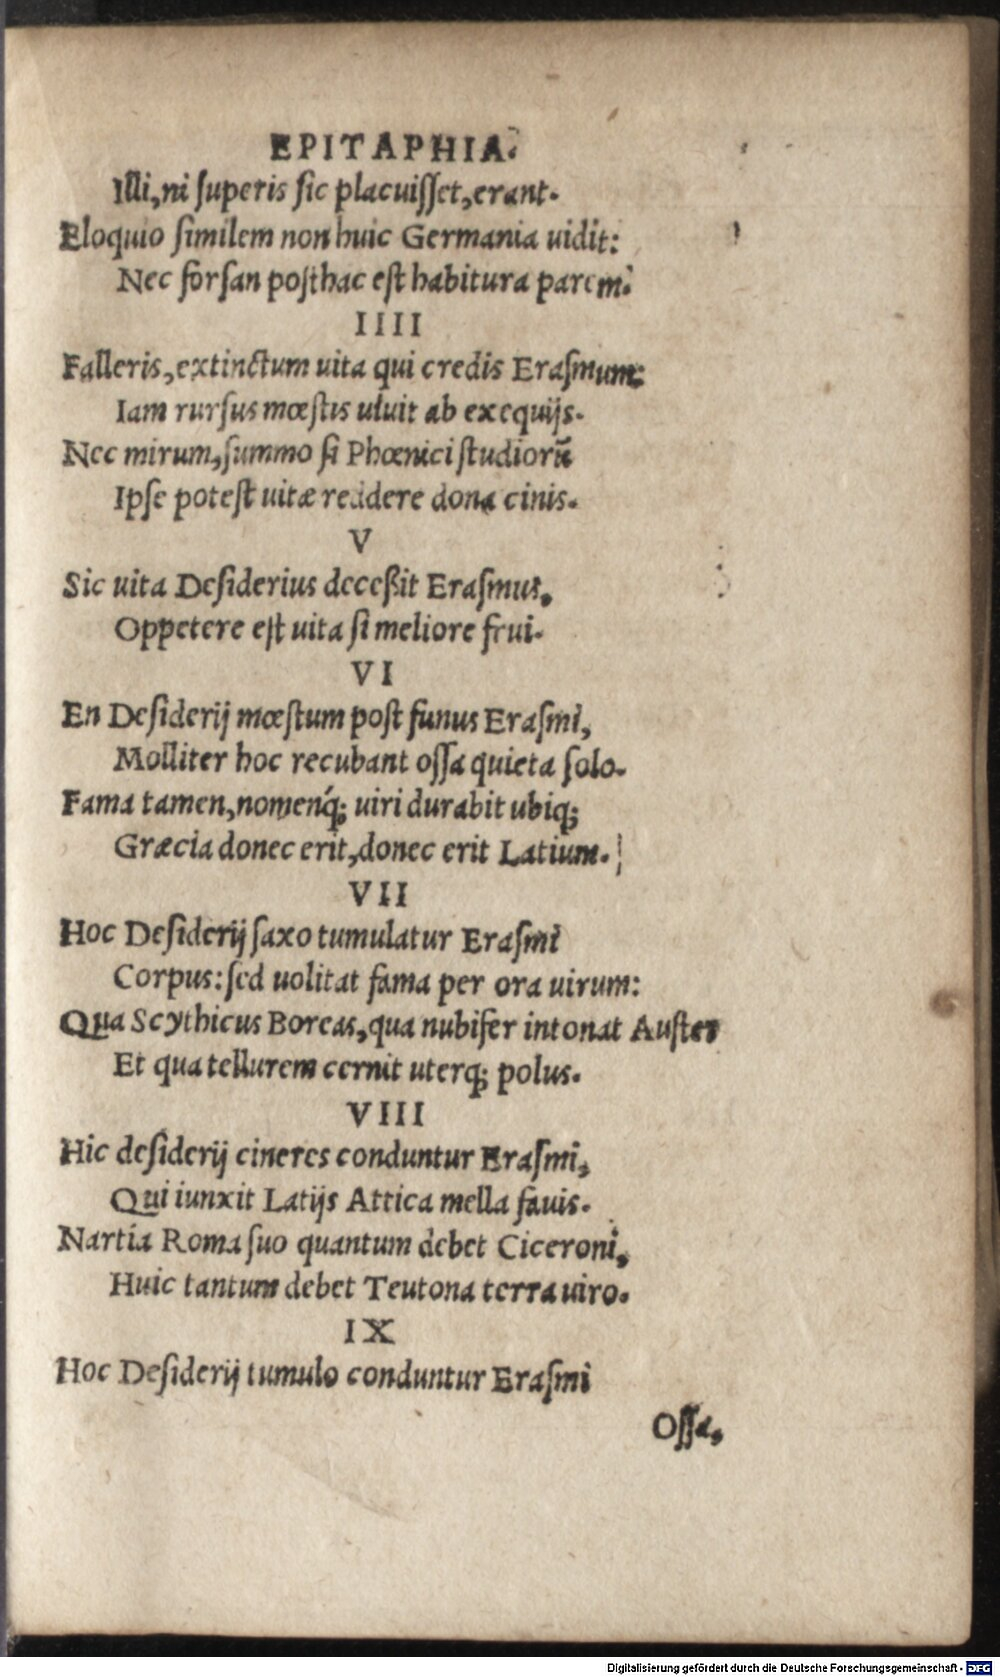 EPITAPHIA.
Illi, ni superis sic placuisset, erant.
Eloquio similem non huic Germania uidit:
Nec forsan posthac est habitura parem.
IIII
Falleris, extinctum uita qui credis Erasmum:
Iam rursus mœstis uiuit ab exequijs.
Nec mirum, summo si Phœnici studiorũ
Ipse potest uitæ reddere dona cinis.
V
Sic uita Desiderius deceßit Erasmus,
Oppetere est uita si meliore frui.
VI
En Desiderij mœstum post funus Erasmi,
Molliter hoc recubant ossa quieta solo.
Fama tamen, nomenq́; uiri durabit ubiq;
Græcia donec erit, donec erit Latium.
VII
Hoc Desiderij saxo tumulatur Erasmi
Corpus: sed uolitat fama per ora uirum:
Qua Scythicus Boreas, qua nubifer intonat Auster
Et qua tellurem cernit uterq; polus.
VIII
Hic desiderij cineres conduntur Erasmi,
Qui iunxit Latijs Attica mella fauis.
Nartia Roma suo quantum debet Ciceroni,
Huic tantum debet Teutona terra uiro.
IX
Hoc Desiderij tumulo conduntur Erasmi
Ossa,
Digitalisierung gefördert durch die Deutsche Forschungsgemeinschaft - DFG